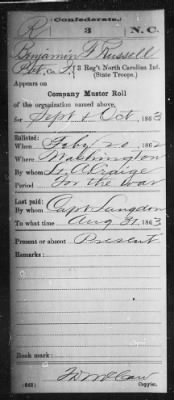 (Confederate.)
R 3 N.C.
Benjamin F Russell
Pvt, Co. 3 Reg't North Carolina Inf.
(State Troops.)
Appears on
Company Muster Roll
of the organization named above,
for Sept & Oct, 1863
Enlisted:
When Feby 20, 1862
Where Washington
By whom Lt. Craige
Period For the War
Last paid:
By whom Capt Langdon
To what time Aug 31, 1863
Present or absent Present
Remarks:
Book mark:
(642)
Copyist.